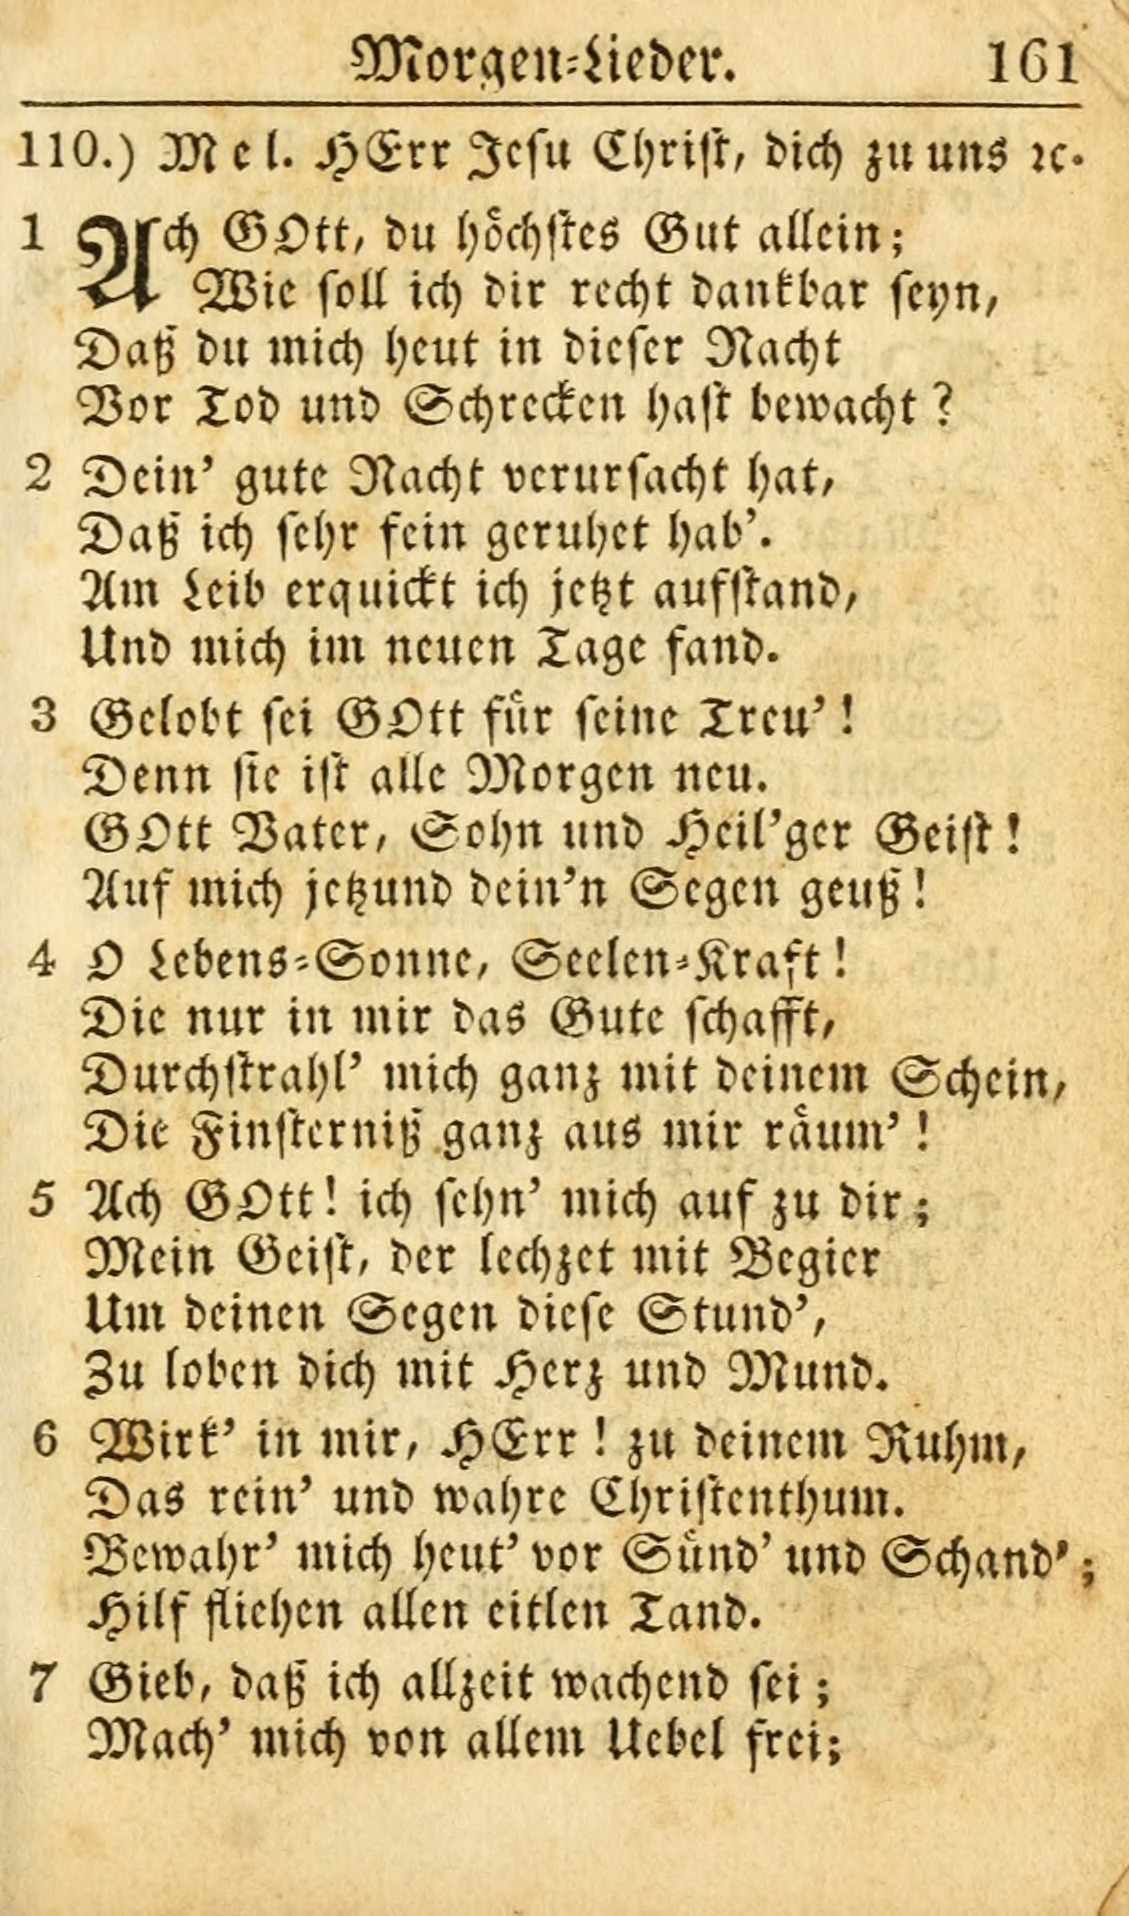 Morgen=Lieder. 161
110.) Mel. HErr Jesu Christ, dich zu uns ꝛc.
1 Ach GOtt, du höchstes Gut allein;
Wie soll ich dir recht dankbar seyn,
Daß du mich heut in dieser Nacht
Vor Tod und Schrecken hast bewacht?
2 Dein' gute Nacht verursacht hat,
Daß ich sehr fein geruhet hab'.
Am Leib erquickt ich jetzt aufstand,
Und mich im neuen Tage fand.
3 Gelobt sei GOtt für seine Treu'!
Denn sie ist alle Morgen neu.
GOtt Vater, Sohn und Heil'ger Geist!
Auf mich jetzund dein'n Segen geuß!
4 O Lebens=Sonne, Seelen=Kraft!
Die nur in mir das Gute schafft,
Durchstrahl' mich ganz mit deinem Schein,
Die Finsterniß ganz aus mir räum'!
5 Ach GOtt! ich sehn' mich auf zu dir;
Mein Geist, der lechzet mit Begier
Um deinen Segen diese Stund',
Zu loben dich mit Herz und Mund.
6 Wirk' in mir, HErr! zu deinem Ruhm,
Das rein' und wahre Christenthum.
Bewahr' mich heut' vor Sünd' und Schand';
Hilf fliehen allen eitlen Tand.
7 Gieb, daß ich allzeit wachend sei;
Mach' mich von allem Uebel frei;